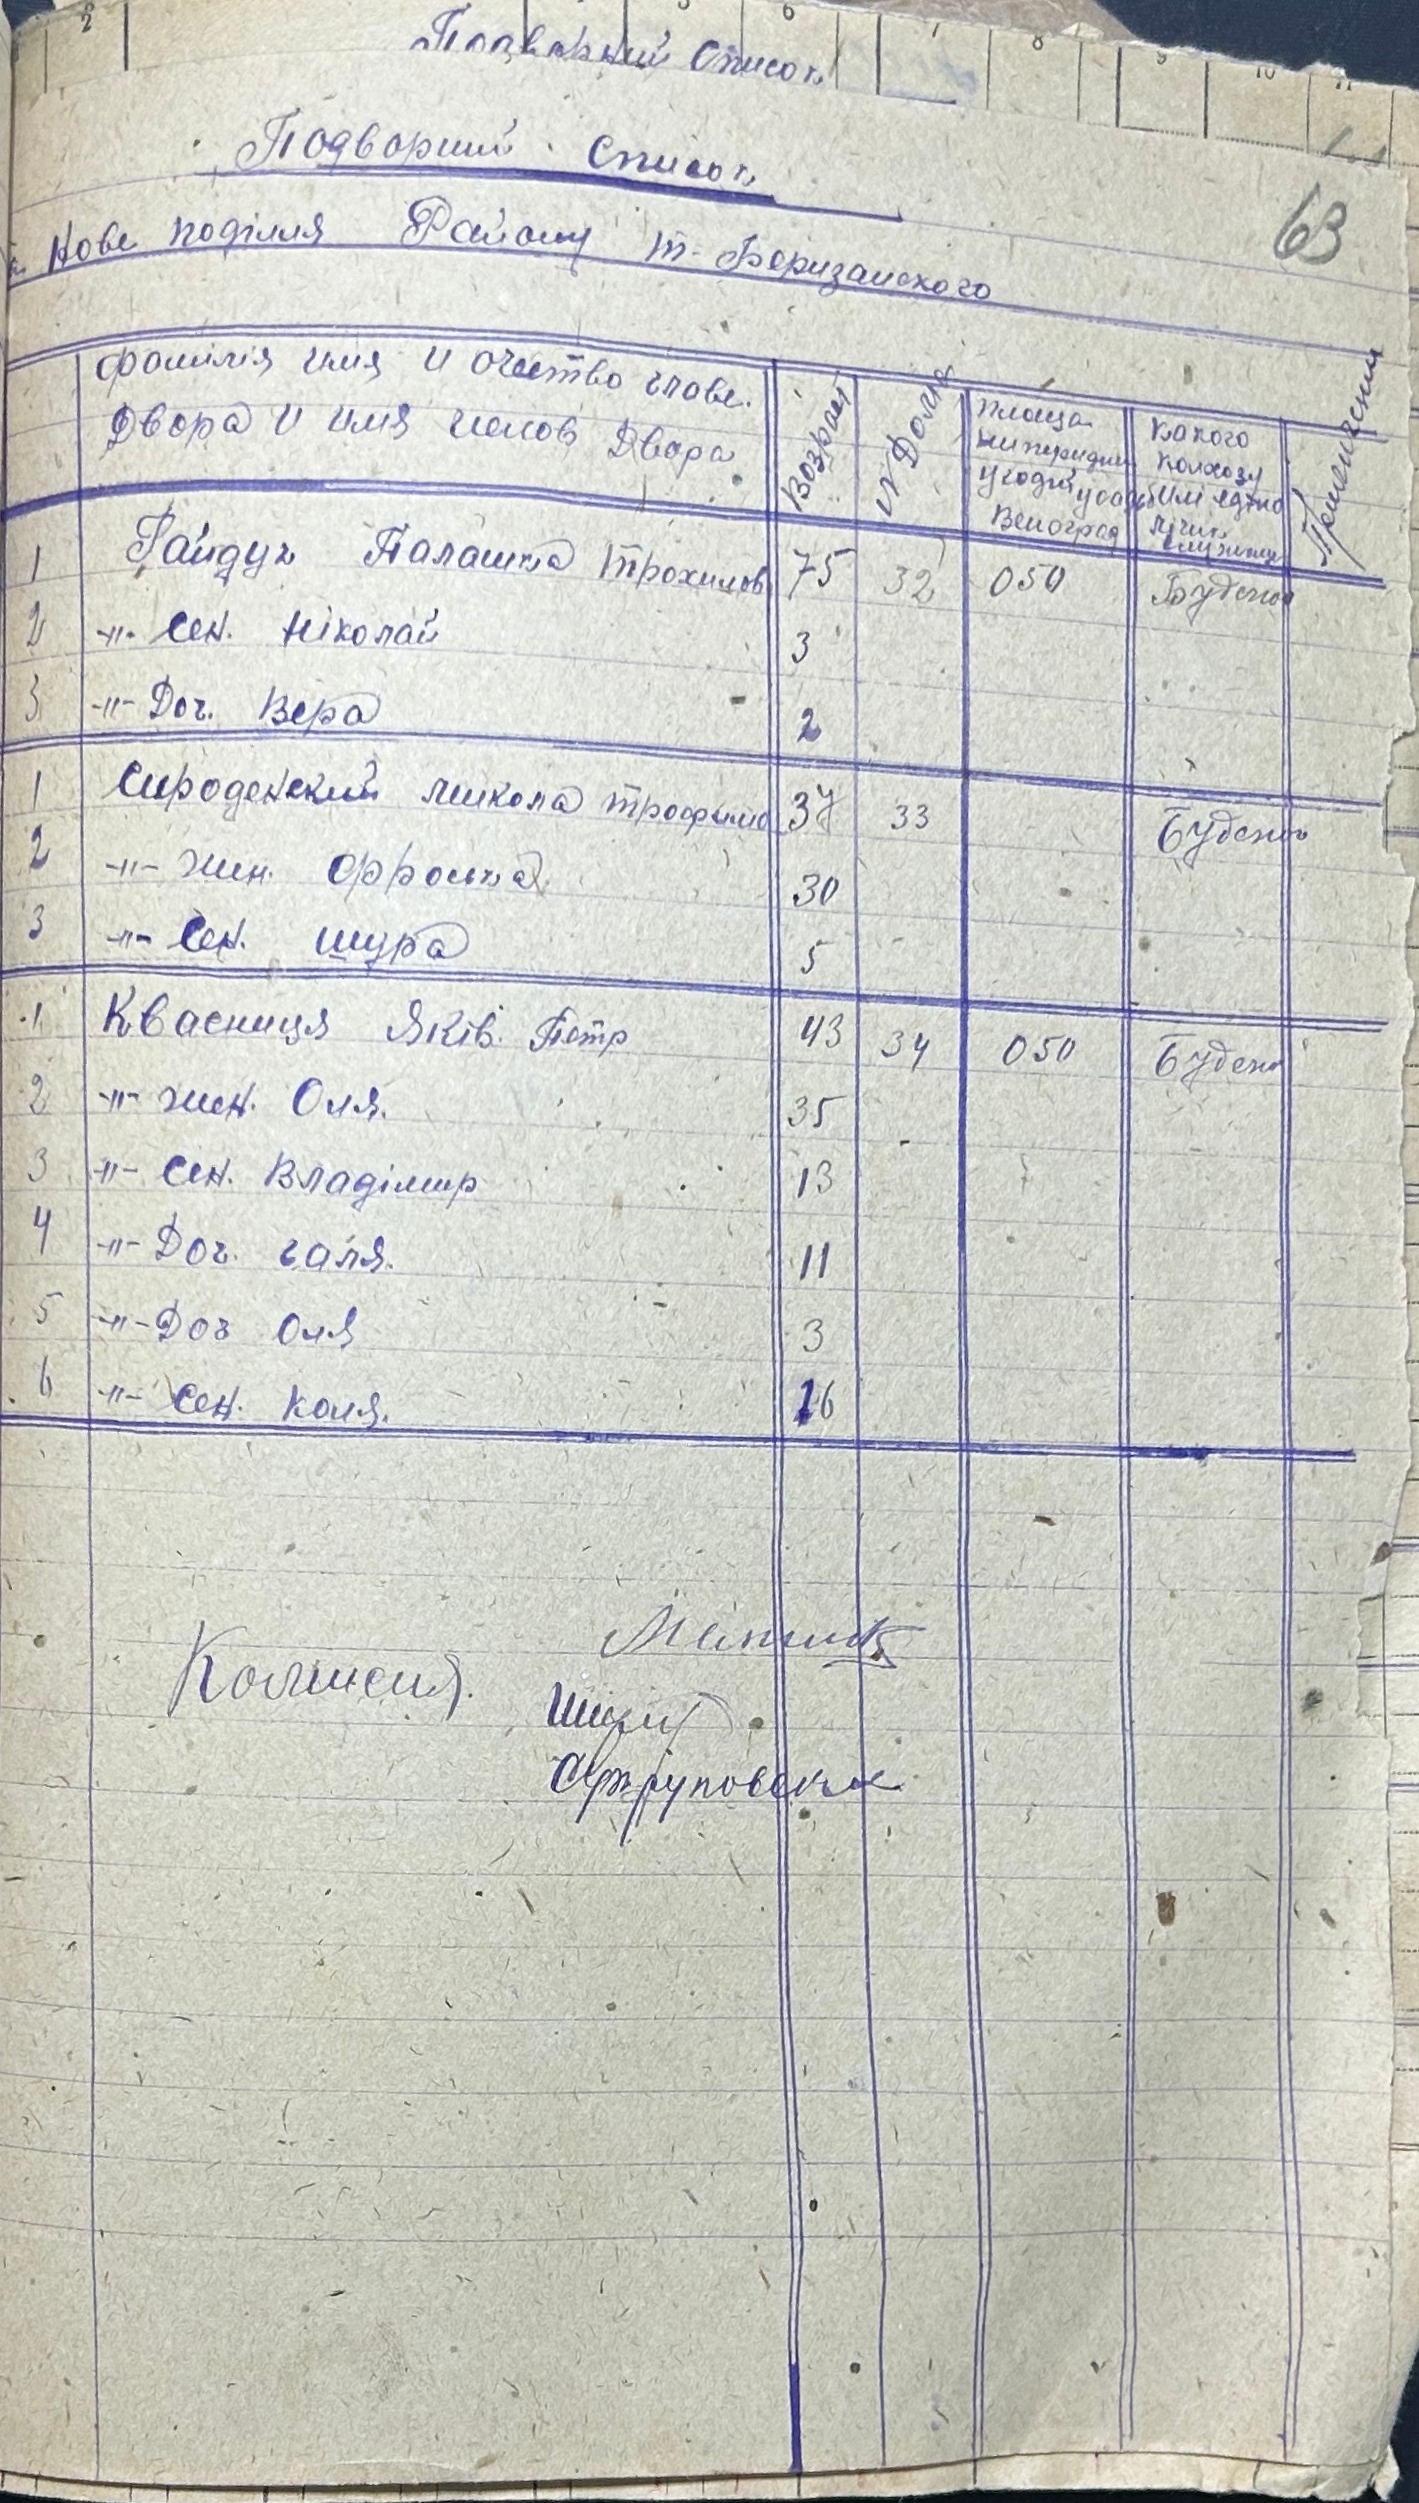 2 5 6 7 8 9 10 11
Подворний Список
Подворний Список
63
Нове поділля Району т-Беризанского
фамілія имя и очество главе.
Двора и имя членов Двора
Возраст
№ Дома
площа
угодий усадьб
Веноград
какого
колхозу
или едно
лічн.
Примечения
1 Гайдук Палашка Трохимов 75 32 050 Будено
2 -"- Сен. Ніколай 3
3 -"- Доч. Вера 2
1 Сироденский микола трофимо 37 33 Будено
2 -"- жин. Фроська 30
3 -"- Сен. шура 5
1 Квасниця Яків. Петр 43 34 050 Будено
2 -"- жен. Оля. 35
3 -"- Сен. Владімир 13
4 -"- Доч. галя. 11
5 -"- Доч Оля 3
6 -"- Сен. коля. 16
Комисия.